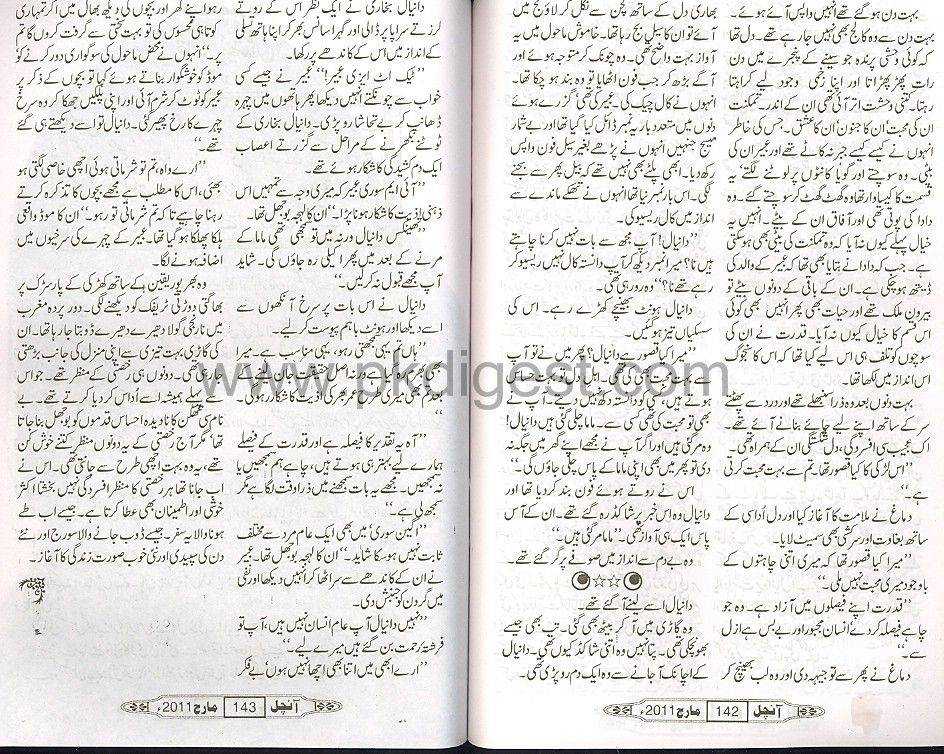 بہت دن ہو گئے تھے انہیں واپس آئے ہوئے۔
بہت دن سے وہ کالج بھی نہیں جا رہے تھے۔ دل تھا
کہ کوئی وحشی پرندہ جو سینے کے پنجرے میں دن
رات پھڑپھڑاتا اور اپنا زخمی وجود لیے کراہتا
رہتا۔ کتنی وحشت اتر آئی تھی ان کے اندر۔ تمکنت
ان کی محبت‘ ان کا جنون‘ ان کا عشق۔ جس کی خاطر
انہوں نے کیسے کیسے جبر نہ کاٹے تھے اور عبیر ان کی
بیٹی۔ وہ سوچتے اور گویا کانٹوں پر لوٹنے لگتے‘ یہ
قسمت کا کیسا وار تھا وہ گھٹ گھٹ کر سوچتے گئے۔ وہ
دادا کی پوتی تھی اور آفاق ان کے بیٹے۔ انہیں یہ
خیال پہلے کیوں نہ آیا کہ وہ تمکنت کی بیٹی بھی ہو سکتی
ہے۔ جب کہ دادا نے بتایا بھی تھا کہ عبیر کے والد کی
ڈیتھ ہو چکی ہے۔ ان کے باقی کے دونوں بیٹے تو
بیرون ملک تھے اور حیات بھی پھر انہیں کبھی کوئی
اس قسم کا خیال کیوں نہ آیا۔ قدرت نے ان کی
سوچوں کو تلف ہی اس لیے کیا تھا کہ اس کا سنجوگ
اس انداز میں لکھا تھا۔
بہت دنوں بعد وہ ذرا سنبھلے تھے اور درد سے پھٹتے
سر کے ساتھ اپنے لیے چائے بنانے آئے تھے۔
اک عجیب سی افسردگی‘ دل شکستگی ان کے ہمراہ تھی۔
’’اس لڑکی کا کیا قصور تھا‘ تم سے بہت محبت کرتی
ہے‘‘
دماغ نے ملامت کا آغاز کیا اور دل اداسی کے
ساتھ بغاوت اور سرکشی بھی سمیٹ لایا۔
’’میرا کیا قصور تھا کہ میری اتنی چاہتوں کے
باوجود میری محبت نہیں ملی۔‘‘
’’قدرت اپنے فیصلوں میں آزاد ہے۔ وہ جو
چاہے فیصلہ کر دے انسان مجبور اور بے بس ہے ازل
سے۔‘‘
دماغ نے پھر سے توجیہہ دی اور وہ لب بھینچ کر
بھاری دل کے ساتھ کچن سے نکل کر لاؤنج میں
آئے تو ان کا سیل بج رہا تھا۔ خاموش ماحول میں یہ
آواز بہت واضح تھی۔ وہ چونک کر متوجہ ہوئے اور
آگے بڑھ کر جب فون اٹھایا تو وہ بند ہو چکا تھا۔
انہوں نے کال چیک کی۔ عبیر کی تھی‘ گزرے ہوئے
دنوں میں متعدد بار یہ نمبر ڈائل کیا گیا تھا اور بے شمار
میسج جنہیں انہوں نے پڑھے بغیر سیل فون واپس
رکھ دیا۔ ابھی پلٹے بھی نہیں تھے کہ بیل پھر سے بجنے
لگی۔ اس بار نمبر نیا تھا انہوں نے تھکے ماندے سے
انداز میں کال ریسیو کی۔
’’دانیال! آپ مجھ سے بات نہیں کرنا چاہتے
ہیں نا؟ میرا نمبر دیکھ کر آپ دانستہ کال نہیں ریسیو کر
رہے تھے نا؟‘‘ وہ رو رہی تھی۔
دانیال ہونٹ بھینچے کھڑے رہے۔ اس کی
سسکیاں تیز ہو گئیں۔
’’میرا کیا قصور ہے دانیال؟ پھر میں نے تو آپ
سے بہت محبت بھی کی تھی۔ اہل دل تو بہت حساس
ہوتے ہیں‘ کسی کو دانستہ دکھ نہیں دیتے۔ آپ نے
بھی تو محبت کی تھی کسی سے۔ ماما چلی گئیں دانیال!
وہ مر گئی ہیں اور اگر آپ نے مجھے اپنے گھر میں جگہ نہ
دی تو پھر میں بھی اپنی ماما کے پاس چلی جاؤں گی۔‘‘
اس نے روتے ہوئے فون بند کر دیا تھا اور
دانیال وہ اس خبر پر شاکڈ رہ گئے تھے۔ ان کے آس
پاس ایک ہی آواز تھی۔ ’’ماما مر گئی ہیں۔‘‘
وہ بے دم سے انداز میں صوفے پر گر گئے تھے۔
دانیال اسے لینے آ گئے تھے۔
وہ گاڑی میں آ کر بیٹھ بھی گئی۔ تب بھی جیسے
بھونچکی تھی۔ پتا نہیں وہ اتنی شاکڈ کیوں تھی۔ دانیال
کے اچانک آ جانے سے وہ ایک دم رو پڑی تھی۔
آنچل 142 مارچ 2011ء
دانیال بخاری نے ایک نظر اس کے روتے
لرزتے سراپا پر ڈالی اور گہرا سانس بھر کر اپنا ہاتھ تسلی
کے انداز میں اس کے کاندھے پر رکھا۔
’’ٹیک اٹ ایزی عبیر!‘‘ عبیر نے جیسے کسی
خواب سے چونکتے انہیں دیکھا پھر ہاتھوں میں چہرہ
ڈھانپ کر بے تحاشا رو پڑی۔ دانیال بخاری کے
ٹوٹتے بکھرنے کے مراحل سے گزرتے اعصاب
ایک دم کشیدگی کا شکار ہوئے تھے۔
’’آئی ایم سوری عبیر کہ میری وجہ سے تمہیں اس
ذہنی اذیت کا شکار ہونا پڑا۔‘‘ ان کا لہجہ بوجھل تھا۔
’’تھینکس دانیال ورنہ میں تو سمجھی تھی ماما کے
مرنے کے بعد میں پھر اکیلی رہ جاؤں گی۔ شاید
آپ مجھے قبول نہ کریں۔‘‘
دانیال نے اس بات پر سرخ آنکھوں سے
اسے دیکھا اور ہونٹ باہم پیوست کر لیے۔
’’ہاں تم یہی سمجھتی رہو‘ یہی مناسب ہے۔ میرا
بھرم بھی رہ جائے گا
بعد تم بھی میری طرح عمر بھر کی اذیت کا شکار رہو گی۔
‘‘
’’آہ یہ تقدیر کا فیصلہ ہے اور قدرت کے فیصلے
ہمارے لیے بہتر ہی ہوتے ہیں‘ چاہے ہم سمجھیں یا
نہ سمجھیں۔ مجھے یہ بات سمجھنے میں ذرا وقت لگا ہے مگر
سمجھ لی ہے۔‘‘
’’اگین سوری‘ میں بھی ایک عام مرد سے مختلف
ثابت نہیں ہو سکا شاید۔‘‘ ان کا لہجہ بوجھل تھا۔ عبیر
نے ان کے کاندھے سے سر اٹھا کر انہیں دیکھا اور نفی
میں گردن کو جنبش دی۔
’’نہیں دانیال آپ عام انسان نہیں ہیں‘ آپ تو
فرشتہ رحمت بن گئے ہیں میرے لیے۔‘‘
’’ارے بھئی میں اتنا بھی اچھا نہیں ہوں‘ بے فکر
رہو اپنے گھر اور بچوں کی دیکھ بھال میں اگر تمہاری
کوتاہی محسوس کی تو بہت سختی سے گرفت کروں گا تم
پر۔‘‘ انہوں نے محض ماحول کی سوگواری دور کرنے کو
موڈ کو خوشگوار بناتے ہوئے کہا تو بچوں کے ذکر پر
عبیر کو ٹوٹ کر شرم آئی اور اپنی پلکیں جھکا کر وہ سرخ
چہرے کا رخ پھیر گئی۔ دانیال تو اسے دیکھتے ہی گئے
تھے۔
’’ارے واہ‘ تم تو شرماتی ہوئی اچھی خاصی لگتی ہو
بھئی‘ اس کا مطلب ہے مجھے بچوں کا تذکرہ کرتے
رہنا چاہیے تا کہ تم شرماتی تو رہو۔‘‘ ان کا موڈ واقعی
ہلکا پھلکا ہو گیا تھا۔ عبیر کے چہرے کی سرخیوں میں
اضافہ ہونے لگا۔
وہ بھرپور یقین کے ساتھ کھڑکی کے پار سڑک پر
بھاگتی دوڑتی ٹریفک کو دیکھنے لگی۔ دور پردہ مغرب
میں نارنجی گولا دھیرے دھیرے ڈوبتا جا رہا تھا۔ ان
کی گاڑی بہت تیزی سے اپنی منزل کی جانب بڑھتی
تھی۔ دونوں ہی رخصتی کے منظر تھے۔ جو اس
سے پہلے ہمیشہ اسے اداس کر دیا کرتے تھے۔ بے
نام سی تھکن کا نادیدہ احساس قدموں کو بوجھل بنا جاتا
تھا مگر آج رخصتی کے یہ دونوں منظر کتنے خوش کن
تھے‘ یہ وہ بہت اچھی طرح سے جانتی تھی۔ اس نے
اب جانا تھا ہر رخصتی کا منظر افسردگی نہیں بخشتا اکثر
خوشی اور اطمینان بھی عطا کرتا ہے۔ جیسے اب طے
ہونے والا یہ سفر۔ جیسے ڈوب جانے والا سورج اور نئے
دن کی سپیدی اور نئی خوب صورت زندگی کا آغاز۔
آنچل 143 مارچ 2011ء
www.pkdigest.com